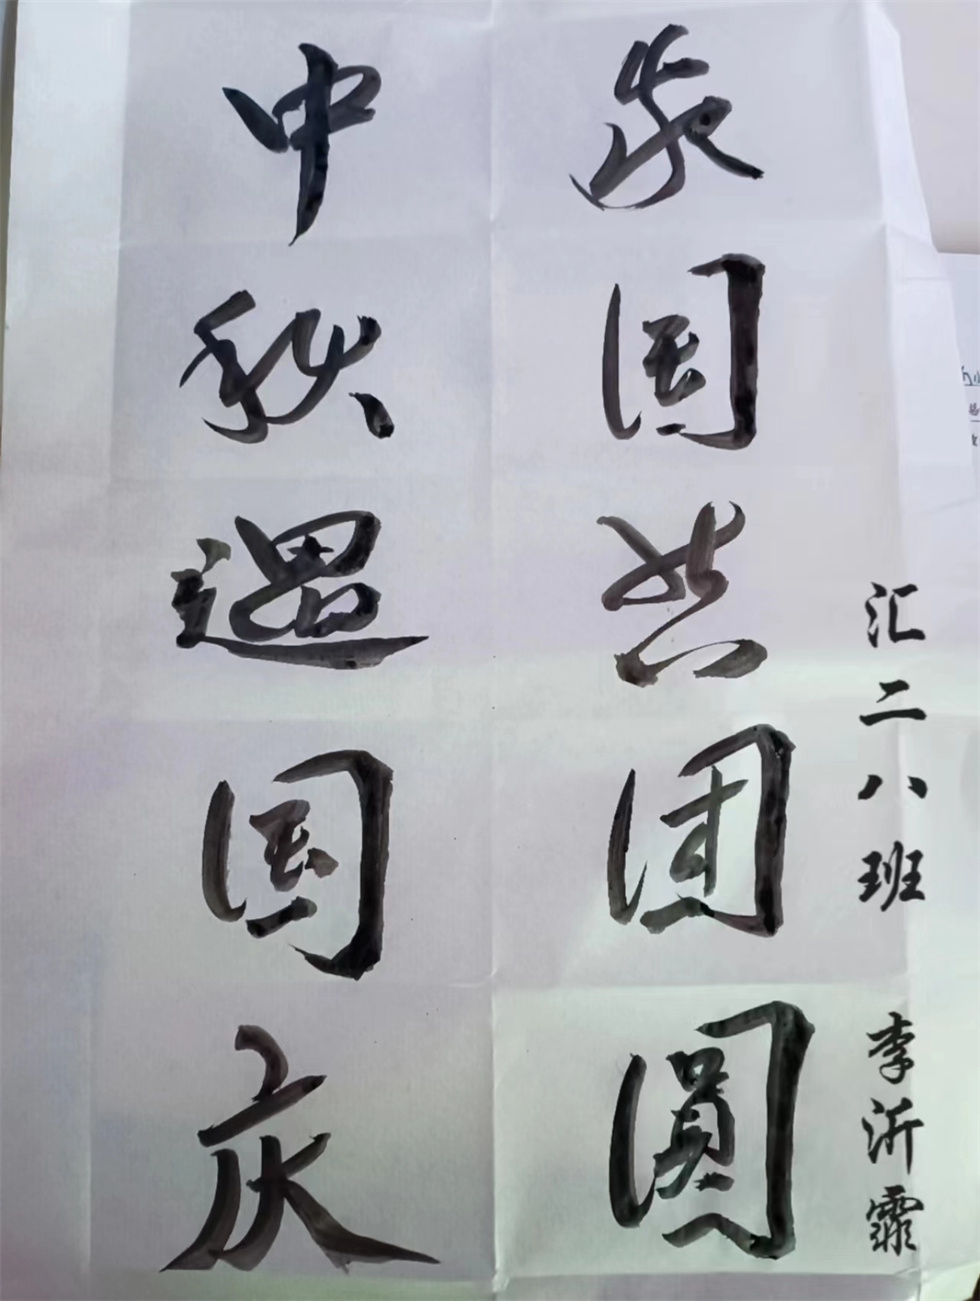 中秋遇国庆
家国共团圆
汇二八班 李沂霏